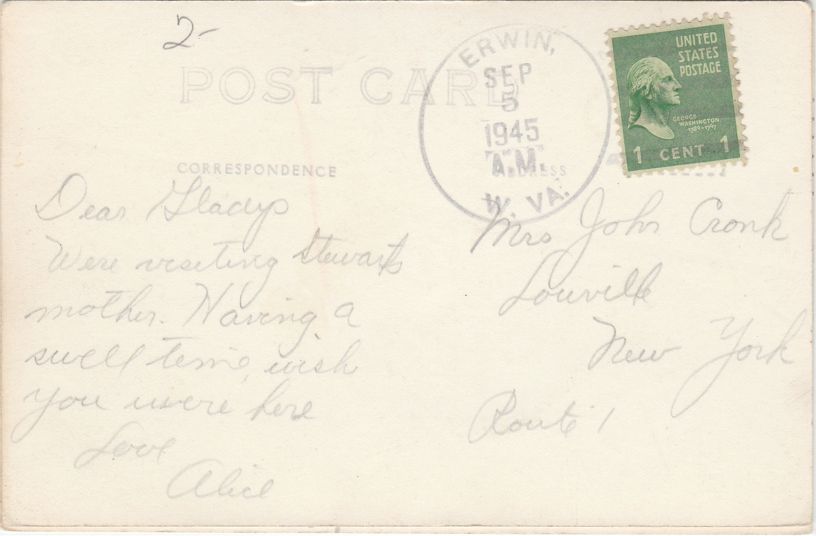 2-
POST CARD
ERWIN,
SEP
5
1945
A.M.
W. VA.
UNITED
STATES
POSTAGE
GEORGE
WASHINGTON
1789-1797
1 CENT 1
CORRESPONDENCE
ADDRESS
Dear Gladys
Were viseting Stewarts
mother. Having a
swell time, wish
you were here
Love
Alice
Mrs John Cronk
Louville
New York
Route 1